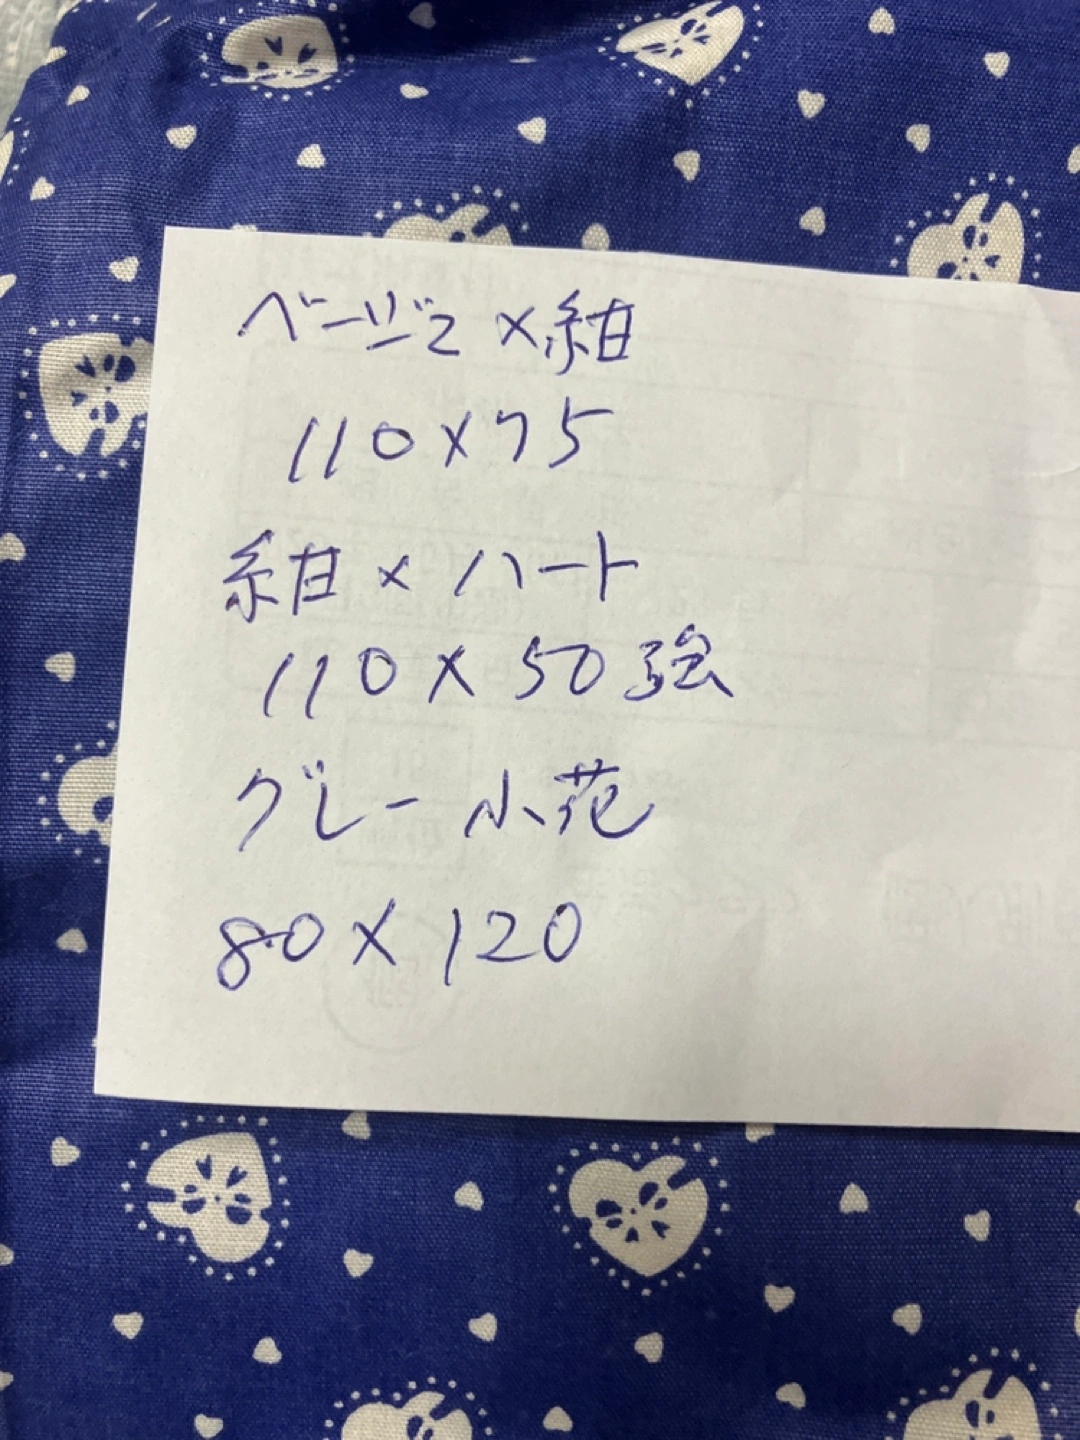 ベージュ×紺
110×75
紺×ハート
110×50強
グレー小花
80×120